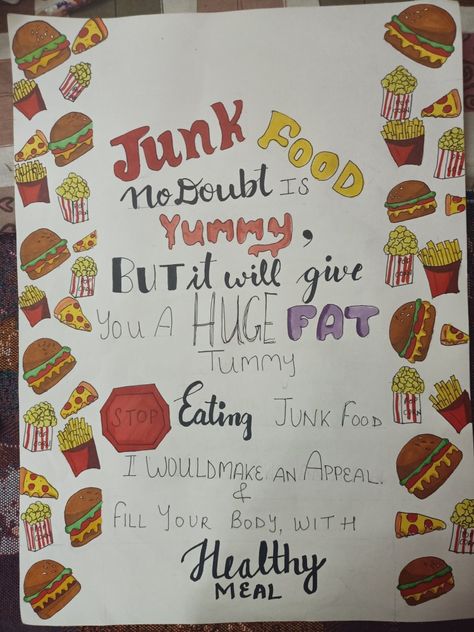 Junk Food
No Doubt Is
Yummy,
But it will give
You A HUGE FAT
Tummy
STOP Eating Junk Food
I WOULDMAKE AN APPEAL.
&
FILL YOUR BODY, WITH
Healthy
MEAL